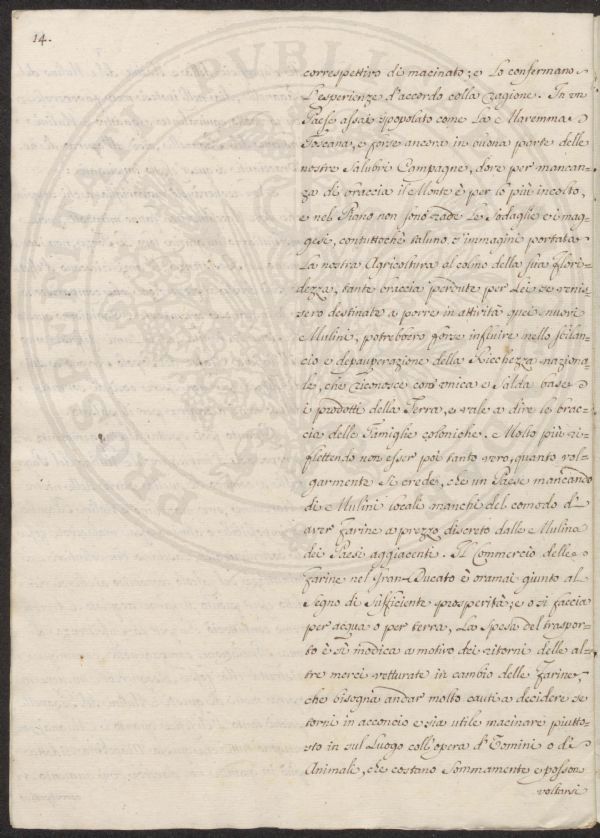 14.
correspettivo di macinato; e Lo confermano
L'esperienze d'accordo colla ragione. In un
Paese assai spopolato come La Maremma
Toscana, e forse ancora in buona parte delle
nostre Salubri Campagne, dove per mancan-
za di braccia il Monte è per lo più incolto,
e nel Piano non sono rade Le Sodaglie e i mag-
gesi, contuttochè taluno s'immagini portata
La nostra Agricoltura al colmo della sua flori-
dezza, tante braccia perdute per Lei se venis-
sero destinate a porre in attività quei nuovi
Mulini, potrebbero forse influire nello sbilan-
cio e depauperazione della Ricchezza naziona-
le, che riconosce con unica e Salda base
i prodotti della Terra, e vale a dire le brac-
cia delle Famiglie coloniche. Molto più ri-
flettendo non esser poi tanto vero, quanto vol-
garmente Si crede, che un Paese mancando
di Mulini locali manchi del comodo d'
aver farine a prezzo discreto dalle Mulina
dei Paesi aggiacenti. Il Commercio delle
farine nel Gran-Ducato è oramai giunto al
Segno di Sufficiente prosperità; e o si faccia
per acqua o per terra, La Spesa del traspor-
to è sì modica a motivo dei ritorni delle al-
tre merci vetturate in cambio delle farine,
che bisogna andar molto cauti a decidere se
torni in acconcio e sia utile macinare piutto-
sto in sul Luogo coll'opera d'Uomini o di
Animali, che costano Sommamente e posson
voltarsi